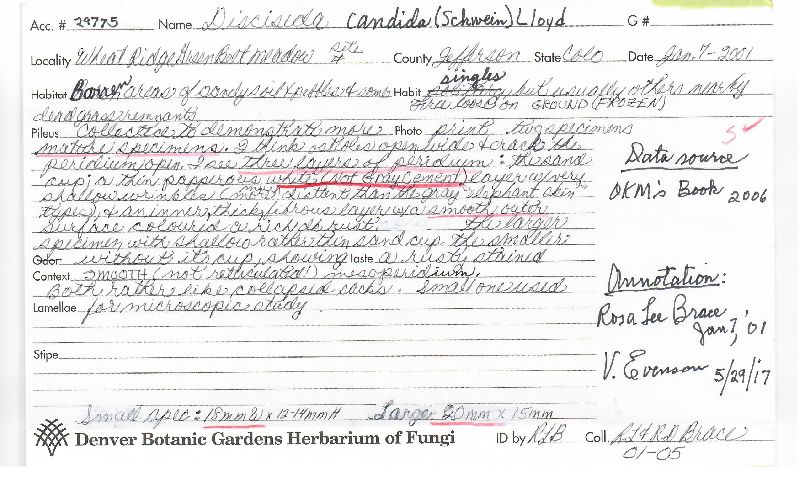 Acc. # 29775 Name Disciseda candida (Schwein) Lloyd G #
Locality Wheat Ridge Green Belt meadow site # County Jefferson State Colo Date Jan. 7 - 2001
Habitat Barren areas of sandy soil & pebbles & some Habit singles but usually others nearby
dead grass remnants. three loose on GROUND (FROZEN)
Pileus Collected to demonstrate more Photo print, two specimens
mature specimens. I think ostioles open wide & crack the
peridium open. I see three layers of peridium: the sand
cup; a thin papperous white (not gray cement) layer w/very
shallow wrinkles (more distent than the gray "elephant skin"
types) & an inner, thick, fibrous layer w/a smooth outer
surface coloured a rich, dk rust. the larger
specimen with shallow rather thin sand cup the smaller
Odor without its cup, showing taste a rusty stained
Context SMOOTH (not reticulated!) mesoperidium.
Both rather like collapsed sacks. Small one used
Lamellae for microscopic study
Stipe
Small spec: 18mm W x 12-14mm H Larger 20mm x 15mm
Denver Botanic Gardens Herbarium of Fungi ID by RLB Coll. RL & RD Brace
01-05
Data source
OKM's Book 2006
Annotation:
Rosa Lee Brace
Jan 7, '01
V. Evenson 5/29/17